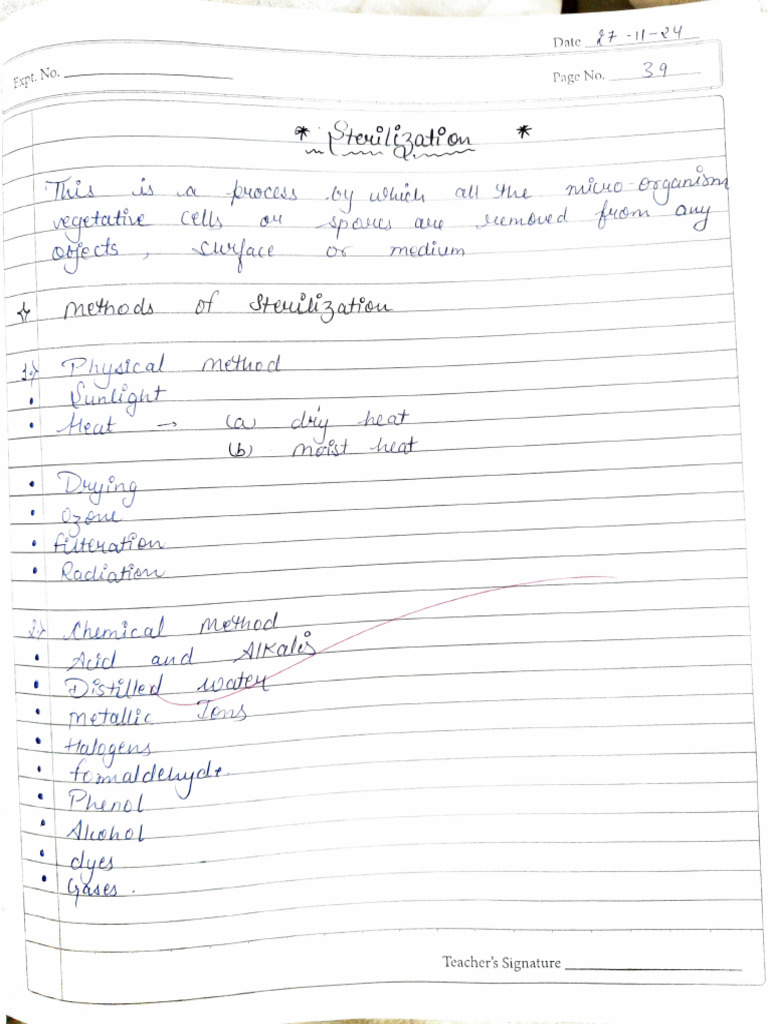 Date 27-11-24
Expt. No.
Page No. 39
* Sterilization *
This is a process by which all the micro-organism
vegetative cells or spores are removed from any
objects, surface or medium
Methods of Sterilization
1.) Physical method
• Sunlight
• Heat → (a) dry heat
(b) moist heat
• Drying
• Ozone
• filteration
• Radiation
2.) Chemical Method
• Acid and Alkalis
• Distilled water
• Metallic Ions
• Halogens
• fomaldehyde.
• Phenol
• Alkohol
• dyes
• Gases.
Teacher's Signature